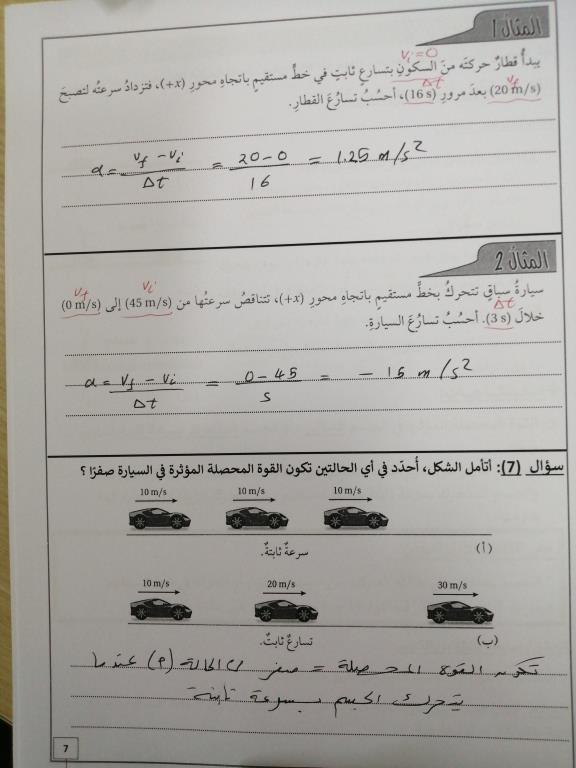 المثال 1
v i = 0
يبدأُ قطارٌ حركتَه منَ السكونِ بتسارعٍ ثابتٍ في خطٍّ مستقيمٍ باتجاهِ محورِ (x+)، فتزدادُ سرعتُه لتصبحَ
Δt
v f
(20 m/s) بعدَ مرورِ (16 s)، أحسُبُ تسارُعَ القطارِ.
a = (v f - v i) / Δt = (20 - 0) / 16 = 1.25 m/s²
المثال 2
v f
v i
سيارةُ سباقٍ تتحركُ بخطٍّ مستقيمٍ باتجاهِ محورِ (x+)، تتناقصُ سرعتُها من (45 m/s) إلى (0 m/s)
Δt
خلالَ (3 s). أحسُبُ تسارُعَ السيارةِ.
a = (v f - v i) / Δt = (0 - 45) / s = - 15 m/s²
سؤال (7): أتأمل الشكل، أُحدّد في أي الحالتين تكون القوة المحصلة المؤثرة في السيارة صفرًا ؟
10 m/s 10 m/s 10 m/s
(أ) سرعةٌ ثابتةٌ.
10 m/s 20 m/s 30 m/s
(ب) تسارعٌ ثابتٌ.
تكون القوة المحصلة = صفر في الحالة (أ) عندما
يتحرك الجسم بسرعة ثابتة
7